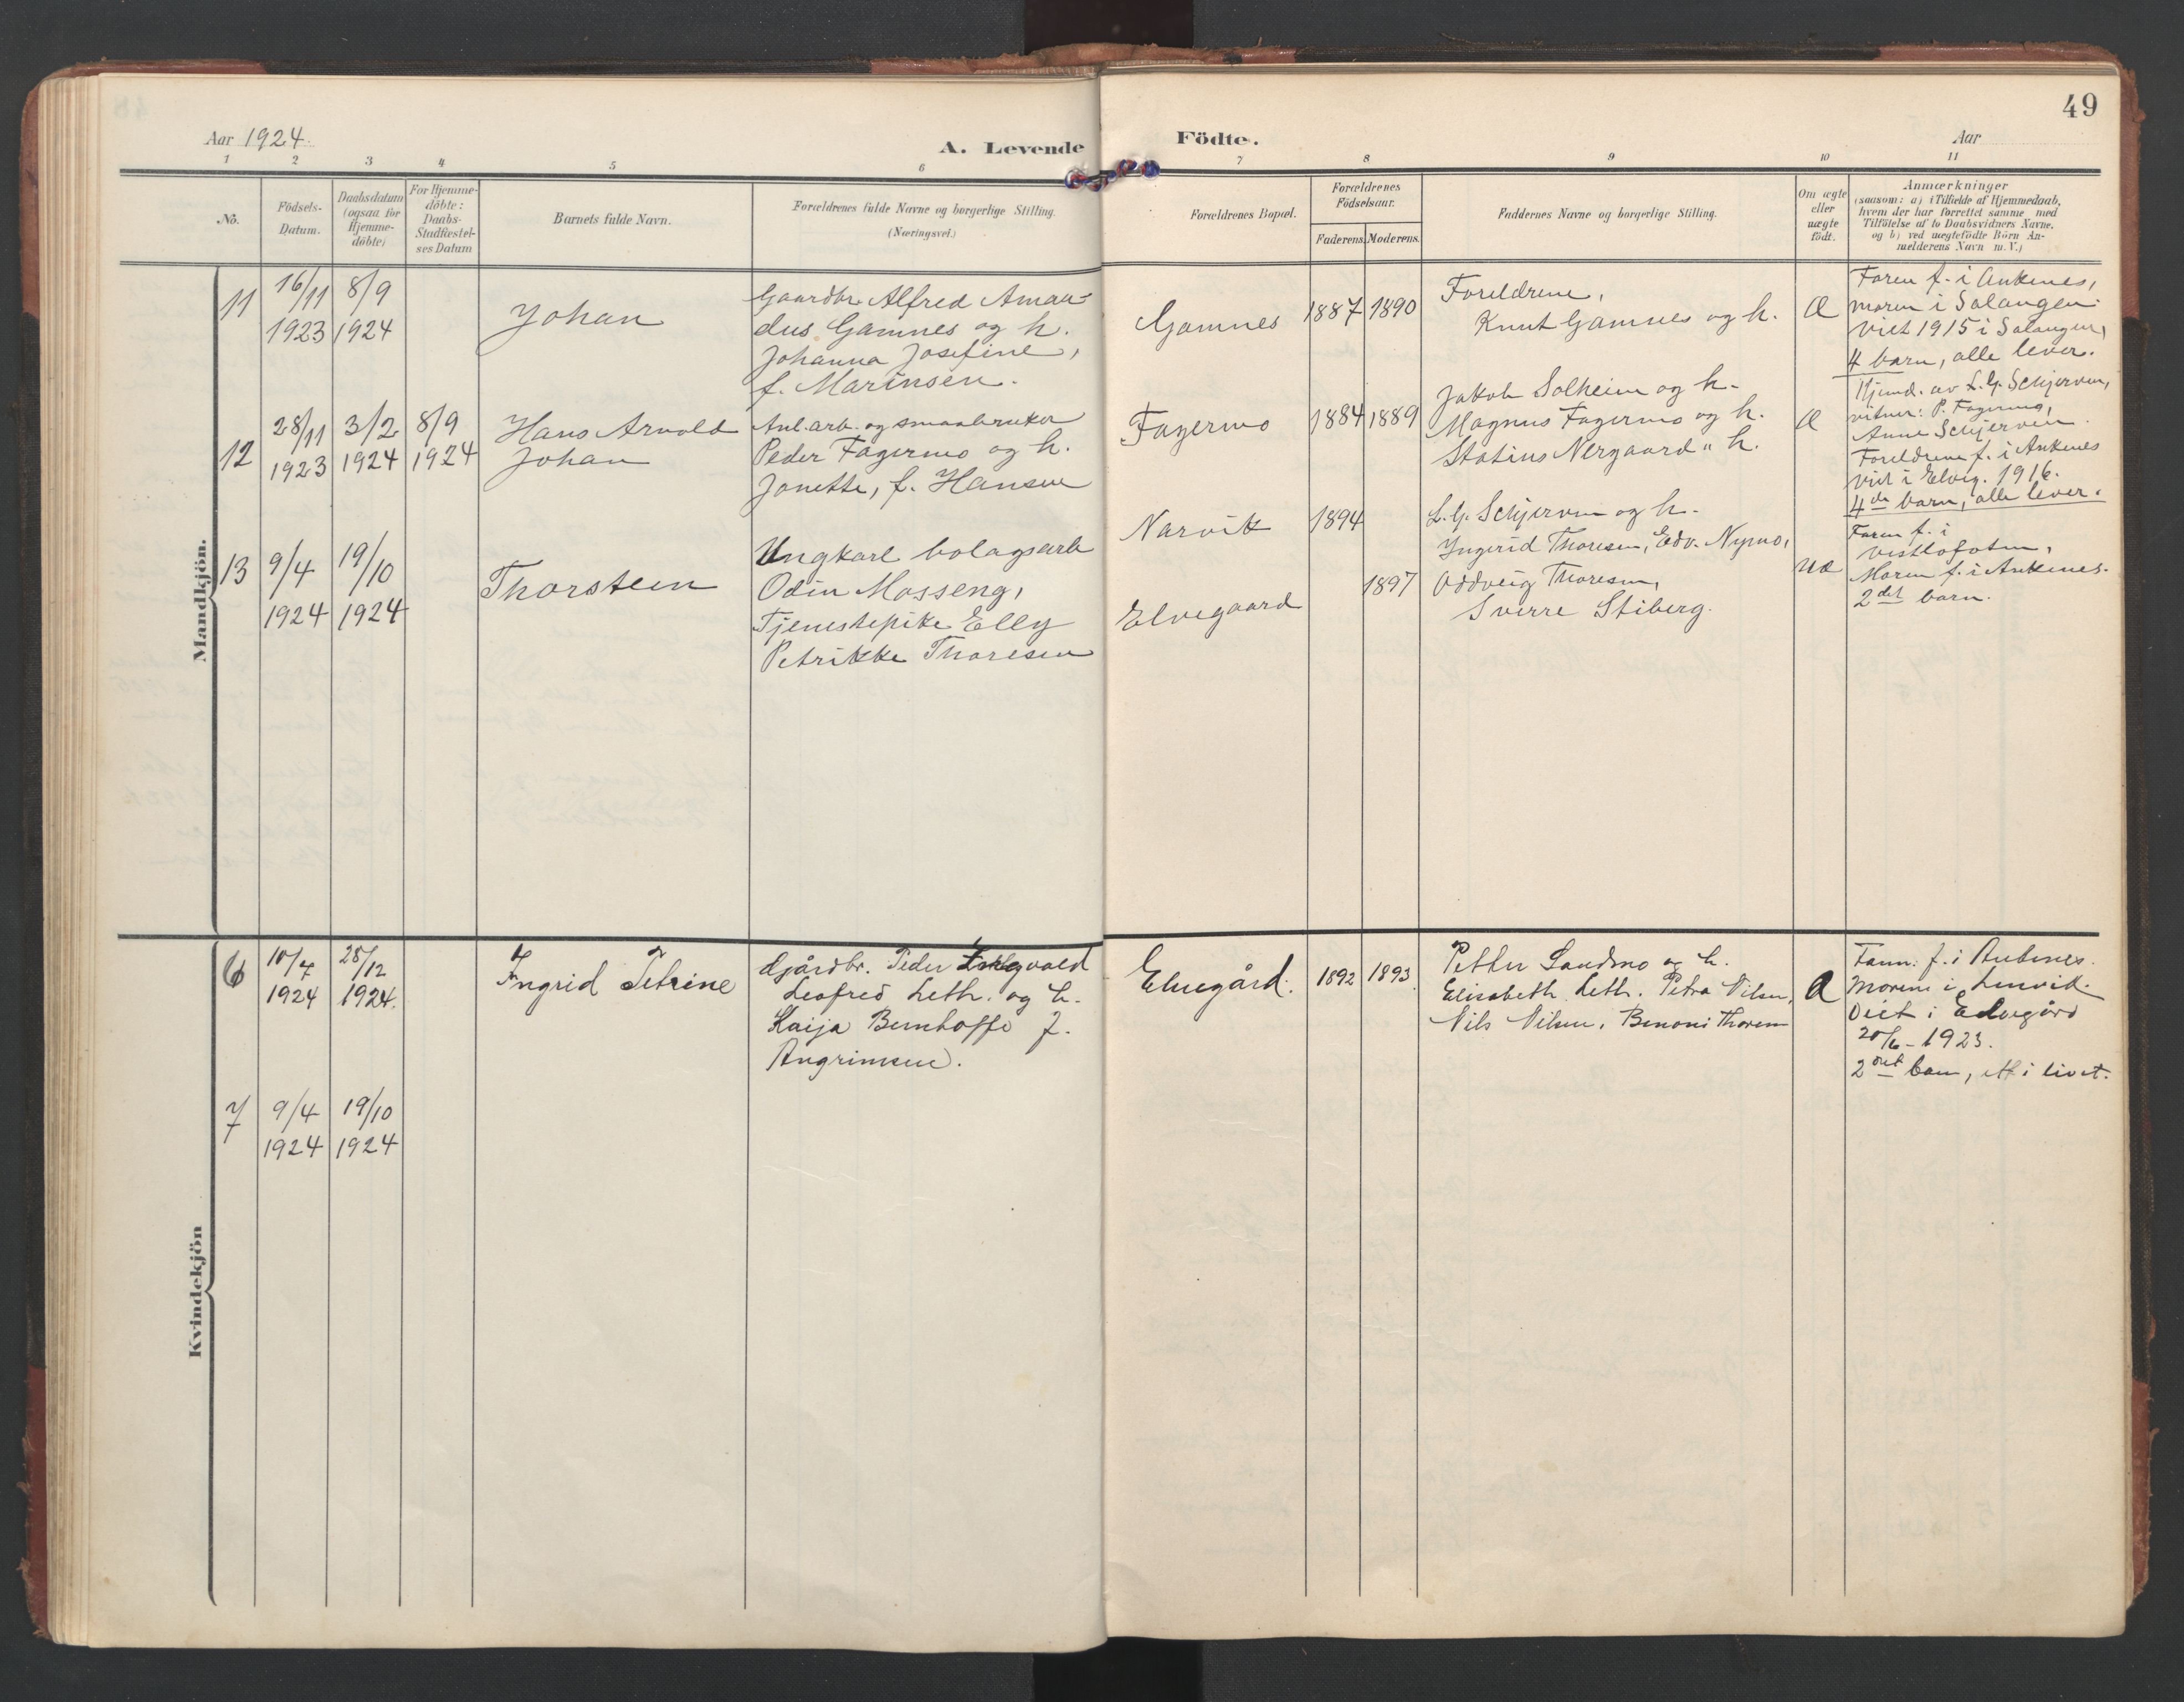 49
Aar 1924.
A. Levende
Födte.
Aar
1 2 3 4 5 6 7 8 9 10 11
No.
Födsels-
Datum.
Daabsdatum
(ogsaa for
Hjemme-
döbte)
For Hjemme-
döbte:
Daabs-
Stadfæstel-
ses Datum
Barnets fulde Navn.
Forældrenes fulde Navne og borgerlige Stilling.
(Næringsvei.)
Forældrenes Bopæl.
Forældrenes
Födselsaar.
Faderens.
Moderens.
Faddernes Navne og borgerlige Stilling.
Om ægte
eller
uægte
födt.
Anmærkninger
(saasom: a) i Tilfælde af Hjemmedaab,
hvem der har forrettet samme med
Tilföielse af to Daabsvidners Navne.
og b) ved uægtefödte Börn An-
melderens Navn m. V.)
Mandkjön.
11
16/11
1923
8/9
1924
Johan
Gaardbr. Alfred Amaa-
dus Gamnes og h.
Johanna Josefine,
f. Marinsen.
Gamnes
1887
1890
Foreldrene,
Knut Gamnes og h.
Æ
Faren f. i Ankenes,
moren i Salangen.
Viet 1915 i Salangen,
4 barn, alle lever.
12
28/11
1923
3/2
1924
8/9
1924
Hans Arnold
Johan
Anl.arb. og smaabruker
Peder Fagermo og h.
Janette, f. Hansen
Fagermo
1884
1889
Jakob Solheim og h.
Magnus Fagermo og h.
Statius Nergaard " h.
Æ
Hjemd. av L. G. Schjerven,
vitner: P. Fagermo,
Anne Schjerven.
Foreldrene f. i Ankenes
viet i Elveg. 1916.
4de barn, alle lever.
13
9/4
1924
19/10
1924
Thorstein
Ungkarl bolagsarb
Odin Mosseng,
Tjenestepike Elly
Petrikke Thoresen
Narvik
Elvegaard
1894
1897
L. G. Schjerven og h.
Ingerid Thoresen, Edv. Nymo,
Oddveig Thoresen,
Sverre Stiberg.
uæ
Faren f. i
Vestlofoten,
Moren f. i Ankenes.
2det barn.
Kvindekjön
6
10/4
1924
28/12
1924.
Ingrid Petrine
Gjårdbr. Peder
Leofred Leth. og h.
Kaija Bernhoffe f.
Angrimsen.
Elvegård.
1892
1893.
Petter Sandmo og h.
Elisabeth Leth. Petra Nilsen,
Nils Nilsen, Benoni Thoresen
Æ
Faren: f. i Ankenes.
Moren i Lenvik.
Viet i Elvegård
20/6-1923.
2det barn, ett i livet.
7
9/4
1924
19/10
1924